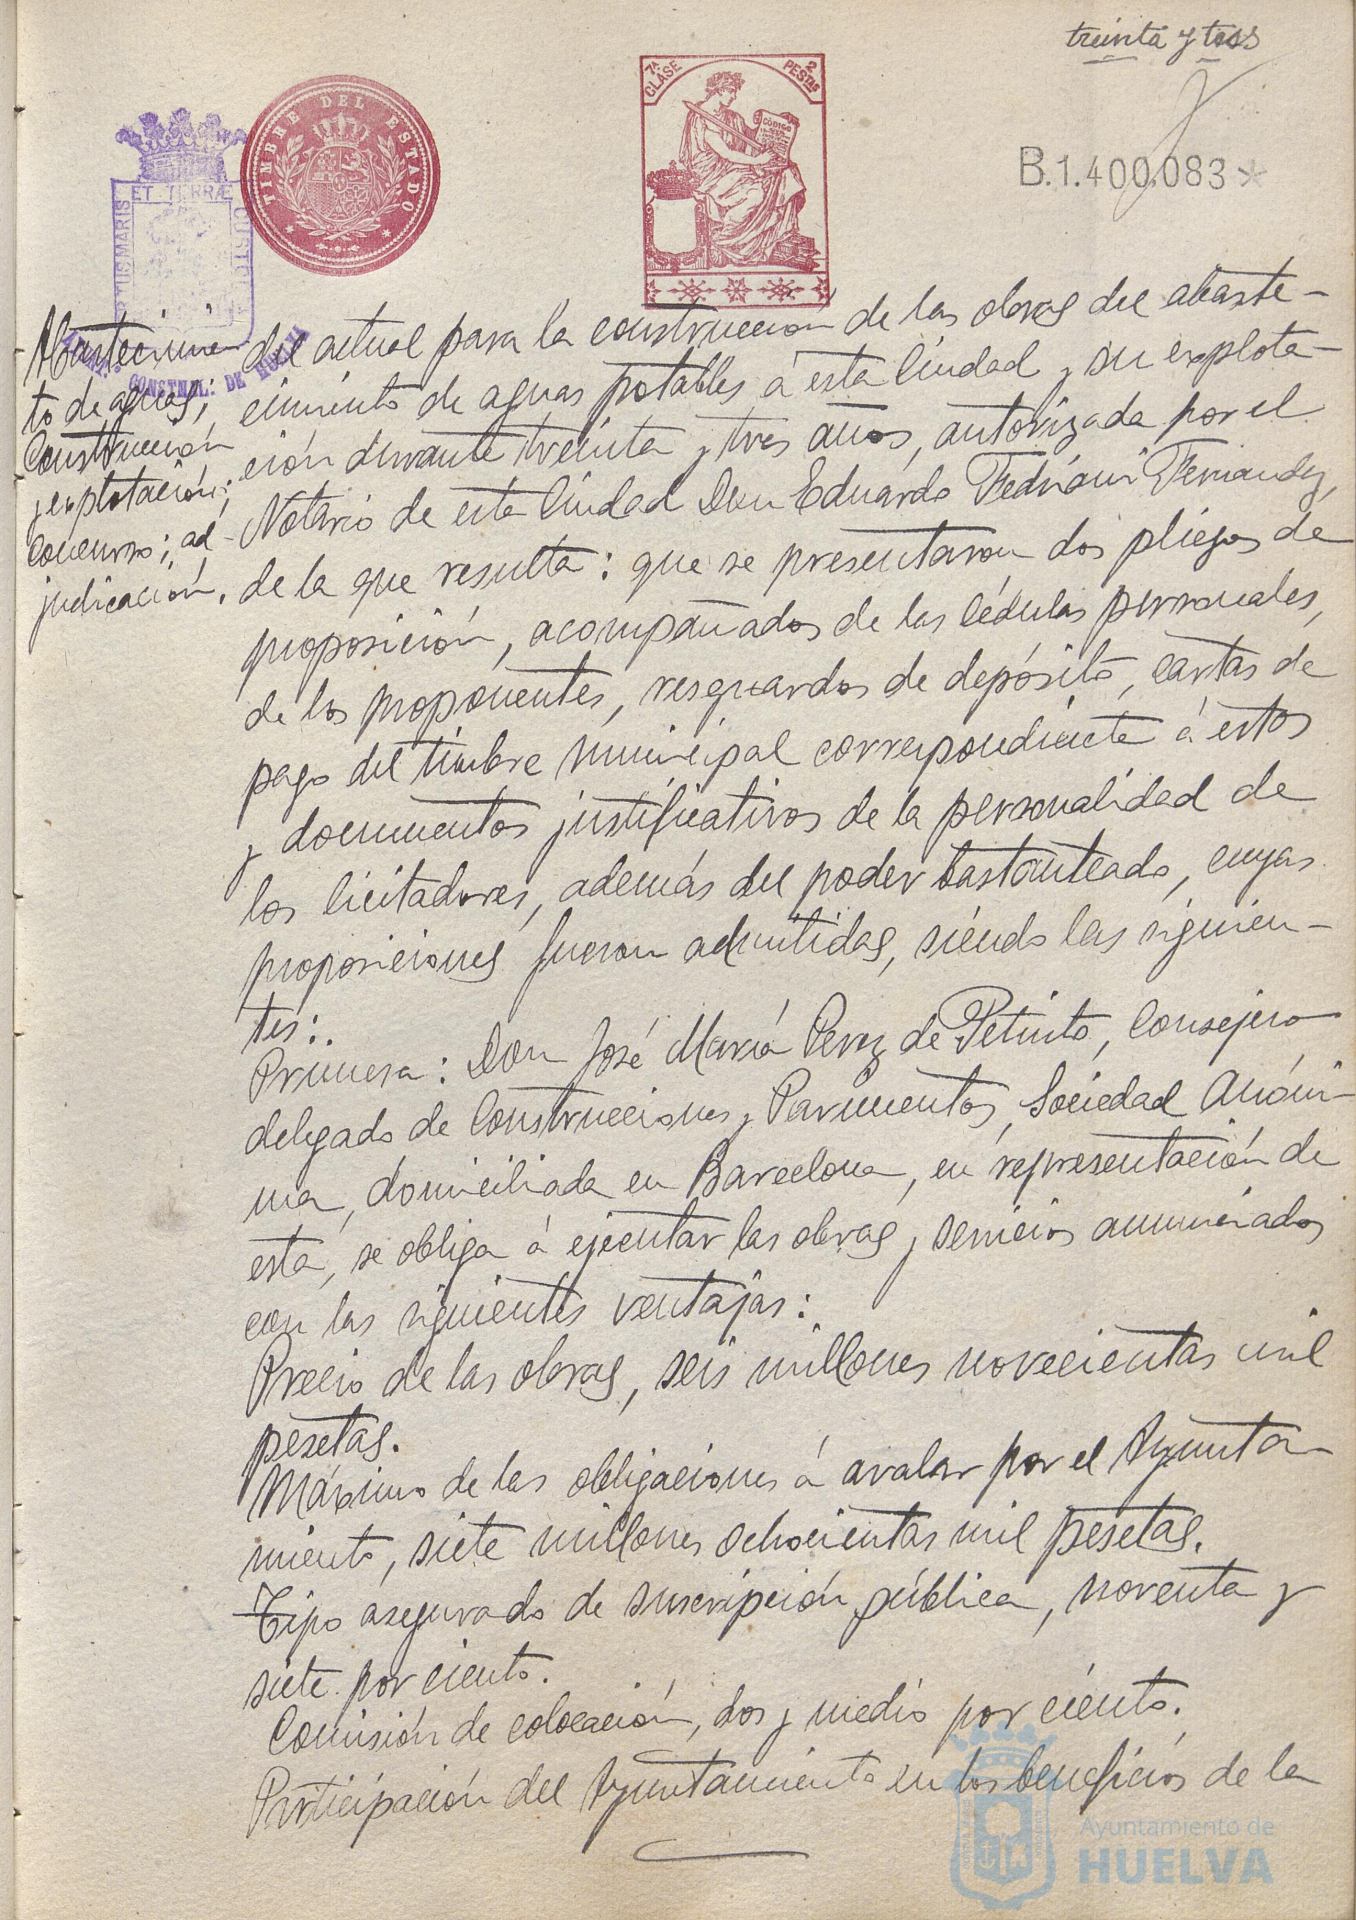 treinta y tres
7ª CLASE
2 PESTAS
CÓDIGO
TIMBRE DEL ESTADO
B.1.400.083*
ET TERRÆ
PORTUS MARIS
CUSTODIA
CONSTNAL: DE HUELVA
Abastecimien
to de aguas;
Construcción
y explotación;
Concurso; ad-
judicación.
del actual para la construcción de las obras del abaste-
cimiento de aguas potables á esta Ciudad y su explota-
ción durante treinta y tres años, autorizada por el
Notario de esta Ciudad Don Eduardo Fedriani Fernandez,
de la que resulta: que se presentaron dos pliegos de
proposición, acompañados de las cédulas personales,
de los proponentes, resguardos de depósito, cartas de
pago del timbre municipal correspondiente á estos
y documentos justificativos de la personalidad de
los licitadores, además del poder bastanteado, cuyas
proposiciones fueron admitidas, siendo las siguien-
tes:.
Primera: Don José María Perez de Petinto, Consejero
delegado de Construcciones y Pavimentos, Sociedad Anóni-
ma, domiciliada en Barcelona, en representación de
esta, se obliga á ejecutar las obras y servicios anunciados
con las siguientes ventajas:
Precio de las obras, seis millones novecientas mil
pesetas.
Máximo de las obligaciones á avalar por el Ayunta-
miento, siete millones ochocientas mil pesetas.
Tipo asegurado de suscripción pública, noventa y
siete por ciento.
Comisión de colocación, dos y medio por ciento.
Participación del Ayuntamiento en los beneficios de la
Ayuntamiento de
HUELVA